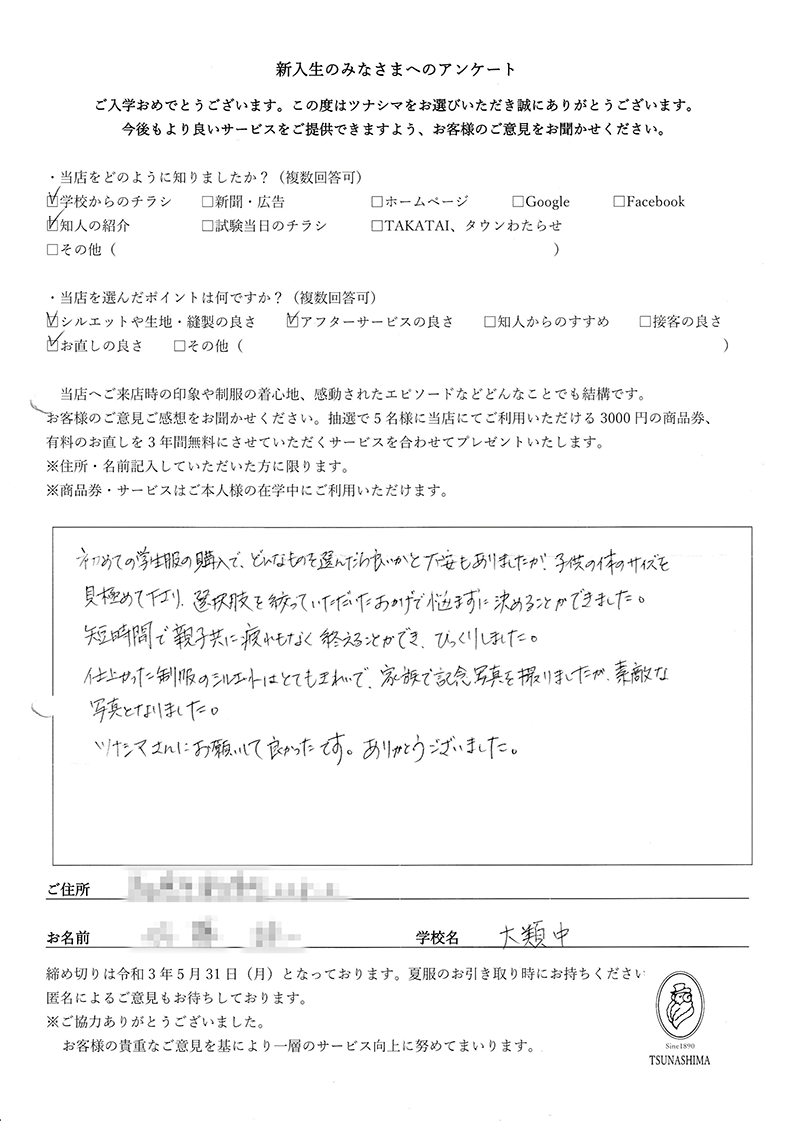 新入生のみなさまへのアンケート
ご入学おめでとうございます。この度はツナシマをお選びいただき誠にありがとうございます。
今後もより良いサービスをご提供できますよう、お客様のご意見をお聞かせください。
・当店をどのように知りましたか？（複数回答可）
☑学校からのチラシ □新聞・広告 □ホームページ □Google □Facebook
☑知人の紹介 □試験当日のチラシ □TAKATAI、タウンわたらせ
□その他（ ）
・当店を選んだポイントは何ですか？（複数回答可）
☑シルエットや生地・縫製の良さ ☑アフターサービスの良さ □知人からのすすめ □接客の良さ
☑お直しの良さ □その他（ ）
当店へご来店時の印象や制服の着心地、感動されたエピソードなどどんなことでも結構です。
お客様のご意見ご感想をお聞かせください。抽選で5名様に当店にてご利用いただける3000円の商品券、
有料のお直しを3年間無料にさせていただくサービスを合わせてプレゼントいたします。
※住所・名前記入していただいた方に限ります。
※商品券・サービスはご本人様の在学中にご利用いただけます。
初めての学生服の購入で、どんなものを選んだら良いかと不安もありましたが、子供の体のサイズを
見極めて下さり、選択肢を絞っていただいたおかげで悩まずに決めることができました。
短時間で親子共に疲れもなく終えることができ、びっくりしました。
仕上がった制服のシルエットはとてもきれいで、家族で記念写真を撮りましたが、素敵な
写真となりました。
ツナシマさんにお願いして良かったです。ありがとうございました。
ご住所
お名前 学校名 大類中
締め切りは令和3年5月31日（月）となっております。夏服のお引き取り時にお持ちください
匿名によるご意見もお待ちしております。
※ご協力ありがとうございました。
お客様の貴重なご意見を基により一層のサービス向上に努めてまいります。
Sine1890
TSUNASHIMA